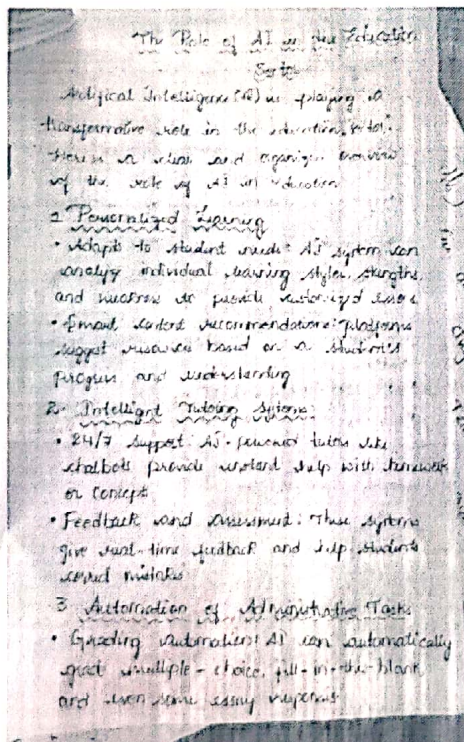 The Role of AI in the Education
Sector
Artifical Intelligence (AI) is playing a
transformative role in the education sector.
Here is a clear and organize overview
of the role of AI in education
1 Personalized Learning
• Adapts to student needs: AI system can
analyze individual learning styles, strengths,
and weakness to provide customized lessons
• Smart content recommendations: platforms
suggest resources based on a student's
progress and understanding
2. Intelligent Tutoring Systems:
• 24/7 Support AI-powered tutors like
chatbots provide instant help with homework
or concept
• Feedback and assessment: These systems
give real-time feedback and help students
correct mistakes
3 Automation of Administrative Tasks
• Grading automation: AI can automatically
grade multiple-choice, fill-in-the-blank
and even some essay responses